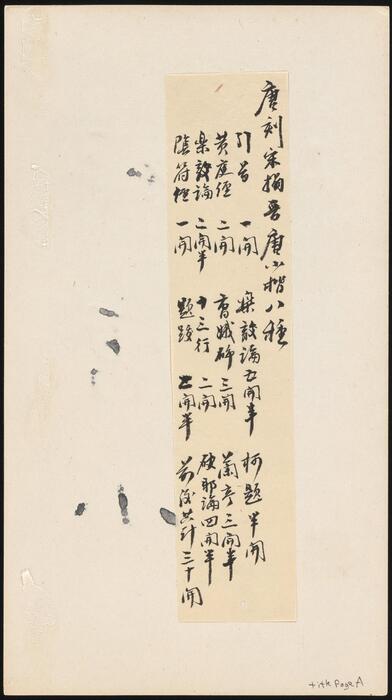 唐刻宋搨晉唐小楷八種
引首 一開 樂毅論五開半 柯題半開
黃庭經 二開 曹娥碑 三開 蘭亭三開半
樂毅論 二開半 十三行 二開 破邪論四開半
陰符經 一開 題跋 開半 前後共計三十開
title page A